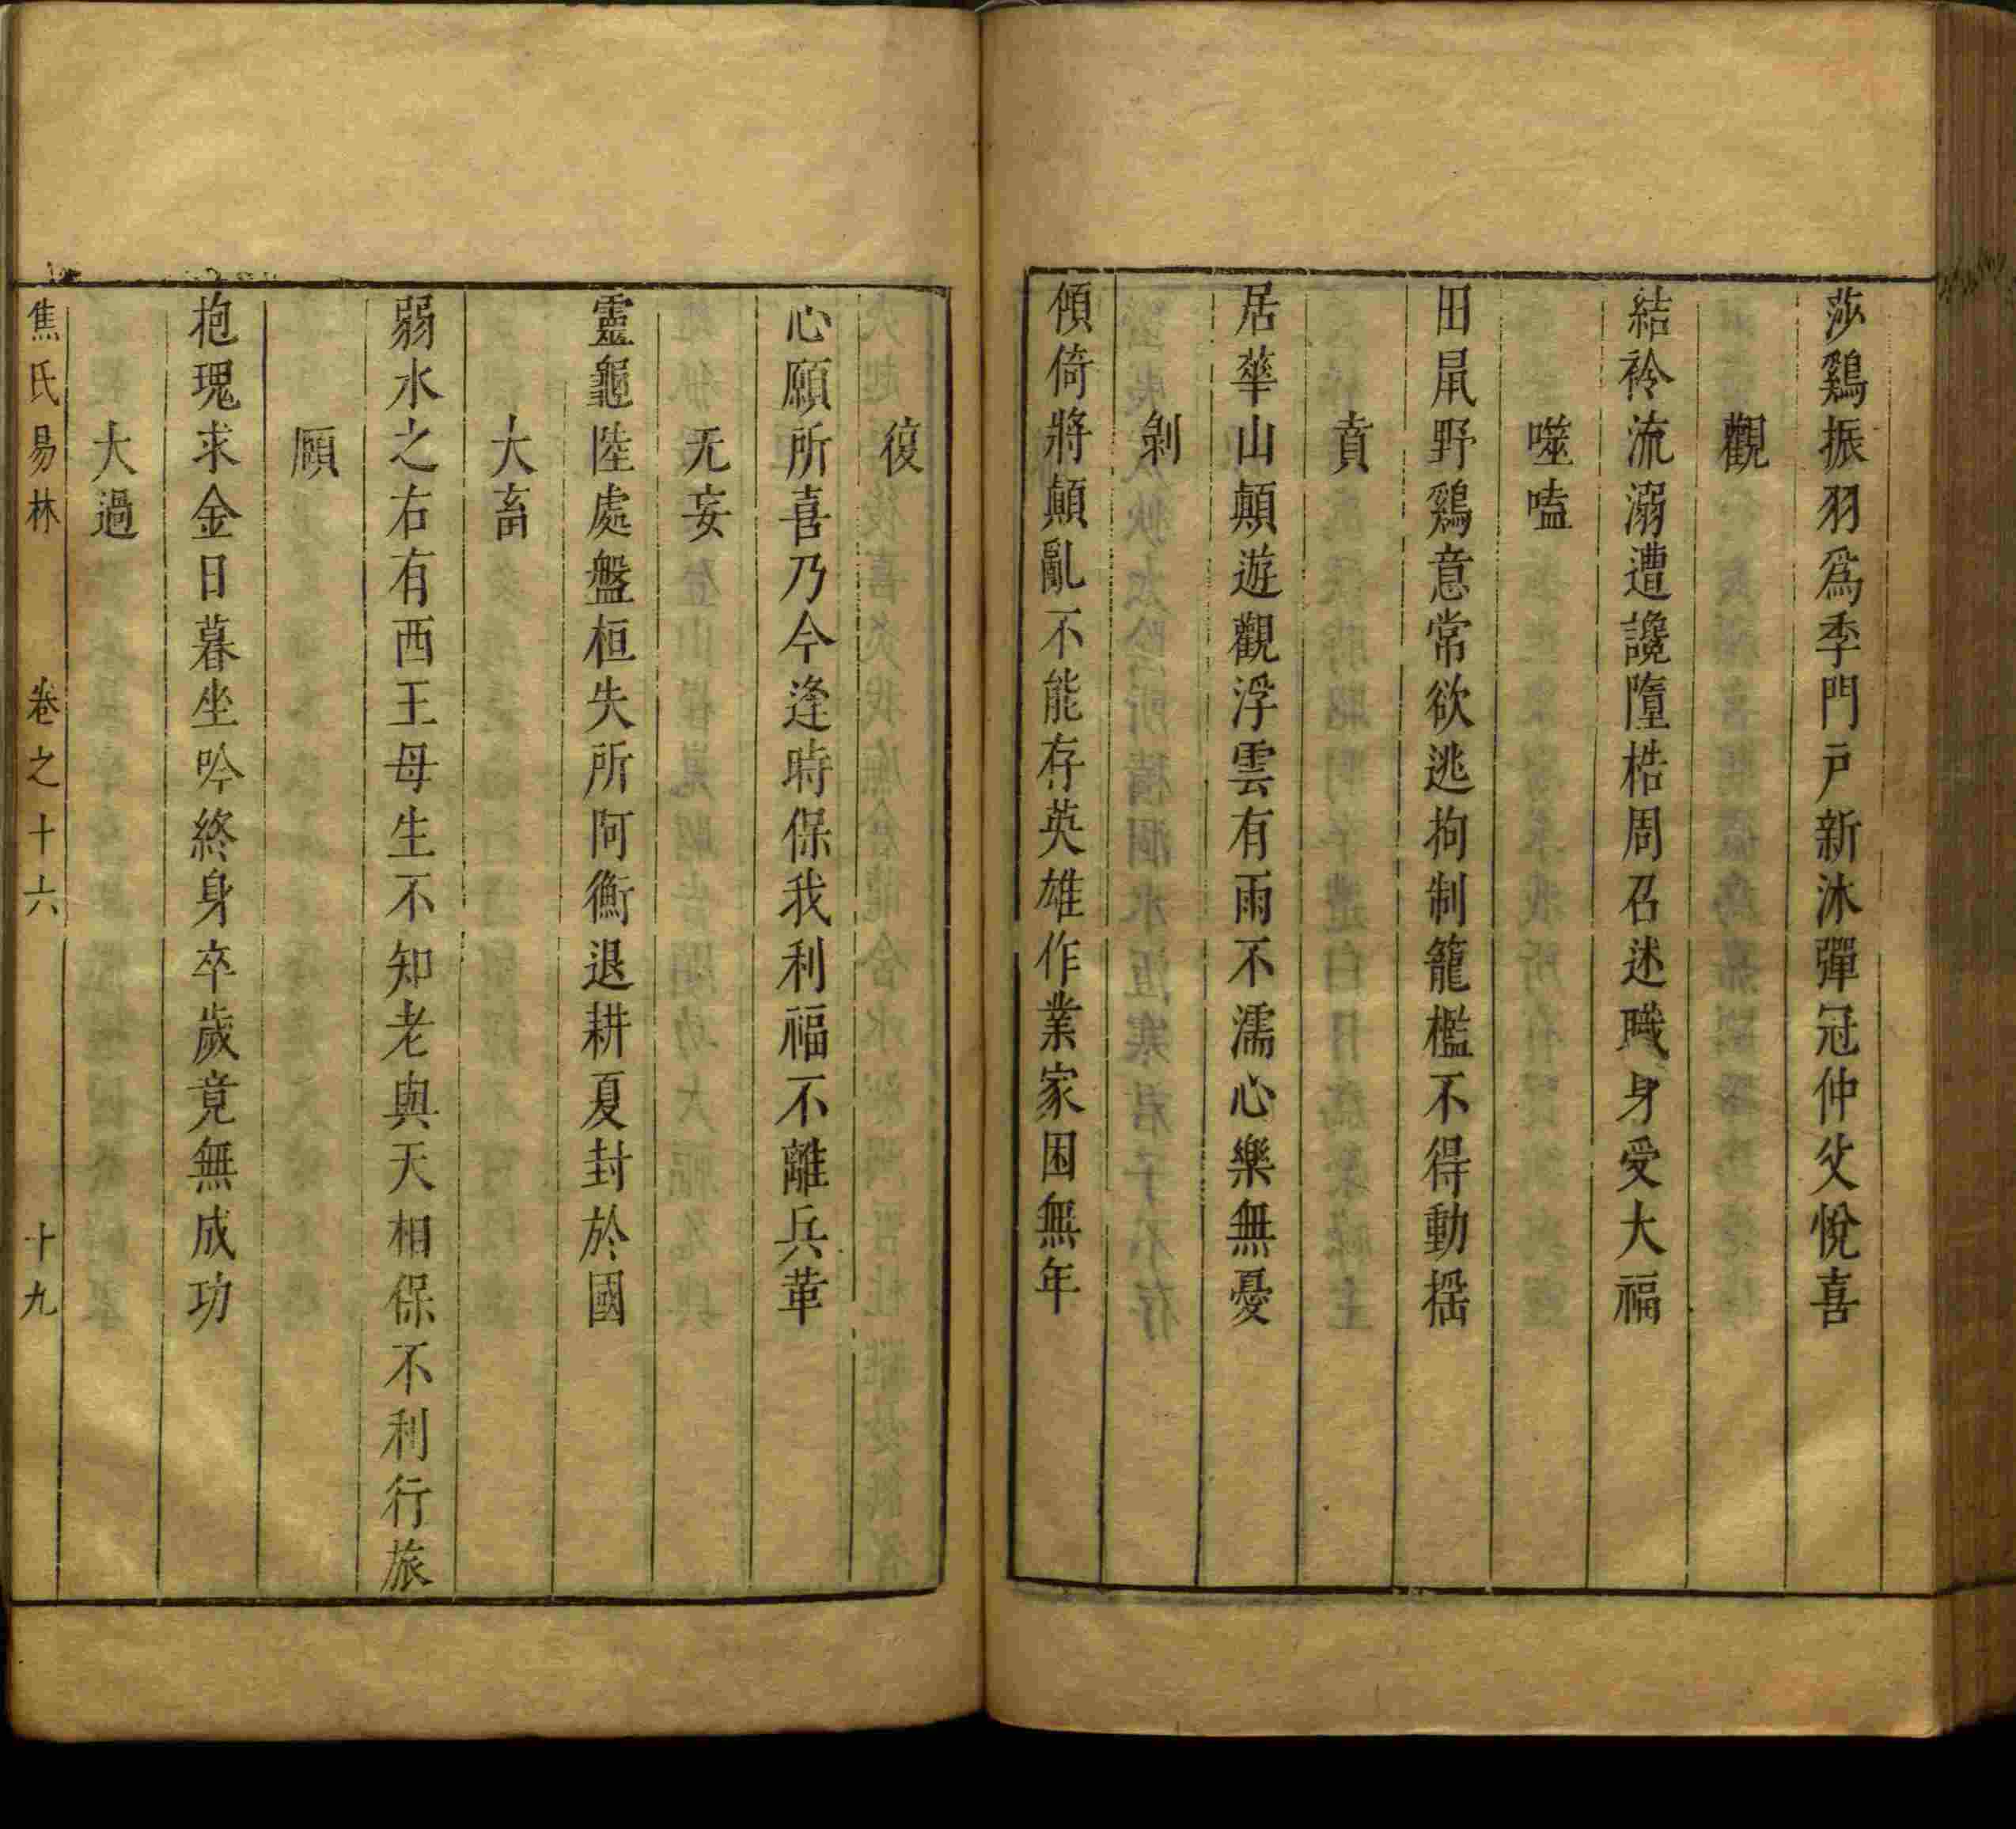 莎鷄振羽爲季門戸新沐彈冠仲父悅喜
觀
結衿流溺遭讒墮梏周召述職身受大福
噬嗑
田鼠野鷄意常欲逃拘制籠檻不得動搖
賁
居華山顛遊觀浮雲有雨不濡心樂無憂
剝
傾倚將顛亂不能存英雄作業家困無年
復
心願所喜乃今逢時保我利福不離兵革
无妄
靈龜陸處盤桓失所阿衡退耕夏封於國
大畜
弱水之右有西王母生不知老與天相保不利行旅
頤
抱瑰求金日暮坐吟終身卒歲竟無成功
大過
焦氏易林 卷之十六 十九